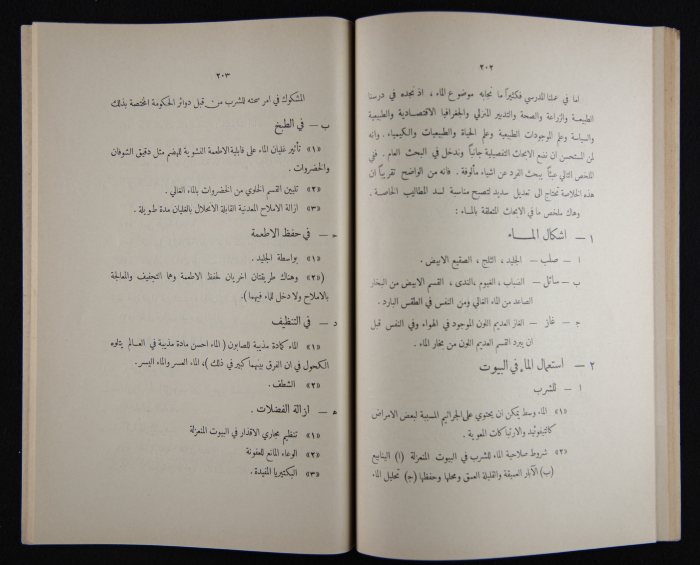 ٢٠٢
اما في عملنا المدرسي فكثيراً ما نجابه موضوع الماء ، اذ نجده في درسنا
الطبيعة والزراعة والصحة والتدبير المنزلي والجغرافيا الاقتصادية والطبيعية
والسياسة وعلم الموجودات الطبيعية وعلم الحياة والطبيعيات والكيمياء . وانه
لمن المستحسن ان نضع الابحاث التفصيلية جانباً وندخل في البحث العام . ففي
الملخص التالي عينًا يبحث الفرد عن اشياء مألوفة . فانه من الواضح تقريباً ان
هذه الخلاصة تحتاج الى تعديل سديد لتصبح مناسبة لسد المطاليب الخاصة .
وهاك ملخص ما في الابحاث المتعلقة بالماء :
١ – اشكال المـــاء
أ – صلب – الجليد ، الثلج ، الصقيع الابيض .
ب – سائل – الضباب ، الغيوم ، الندى ، القسم الابيض من البخار
الصاعد من الماء الغالي ومن النفس في الطقس البارد .
ج – غاز – الغاز العديم اللون الموجود في الهواء وفي النفس قبل
ان يبرد القسم العديم اللون من بخار الماء .
٢ – استعمال الماء في البيوت
أ – للشرب
«١» الماء وسط يمكن ان يحتوي على الجراثيم المسببة لبعض الامراض
كالتيفوئيد والارتباكات المعوية .
«٢» شروط صلاحية الماء للشرب في البيوت المنعزلة (ا) الينابيع
(ب) الآبار العميقة والقليلة العمق ومحلها وحفظها (ج) تحليل الماء
٢٠٣
المشكوك في امر صحته للشرب من قبل دوائر الحكومة المختصة بذلك
ب – في الطبخ
«١» تأثير غليان الماء على قابلية الاطعمة النشوية للهضم مثل دقيق الشوفان
والخضروات .
«٢» تليين القسم الخلوي من الخضروات بالماء الغالي .
«٣» ازالة الاملاح المعدنية القابلة الانحلال بالغليان مدة طويلة .
ج – في حفظ الاطعمة
«١» بواسطة الجليد .
(«٢» وهناك طريقتان اخريان لحفظ الاطعمة وهما التجفيف والمعالجة
بالاملاح ولا دخل للماء فيهما) .
د – في التنظيف
«١» الماء كمادة مذيبة للصابون ( الماء احسن مادة مذيبة في العـالم يتلوه
الكحول في ان الفرق بينهما كبير في ذلك ) ، الماء العسر والماء اليسر .
«٢» الشطف .
ه – ازالة الفضلات .
«١» تنظيم مجاري الاقذار في البيوت المنعزلة
«٢» الوعاء المانع للعفونة
«٣» البكتيريا المفيدة .